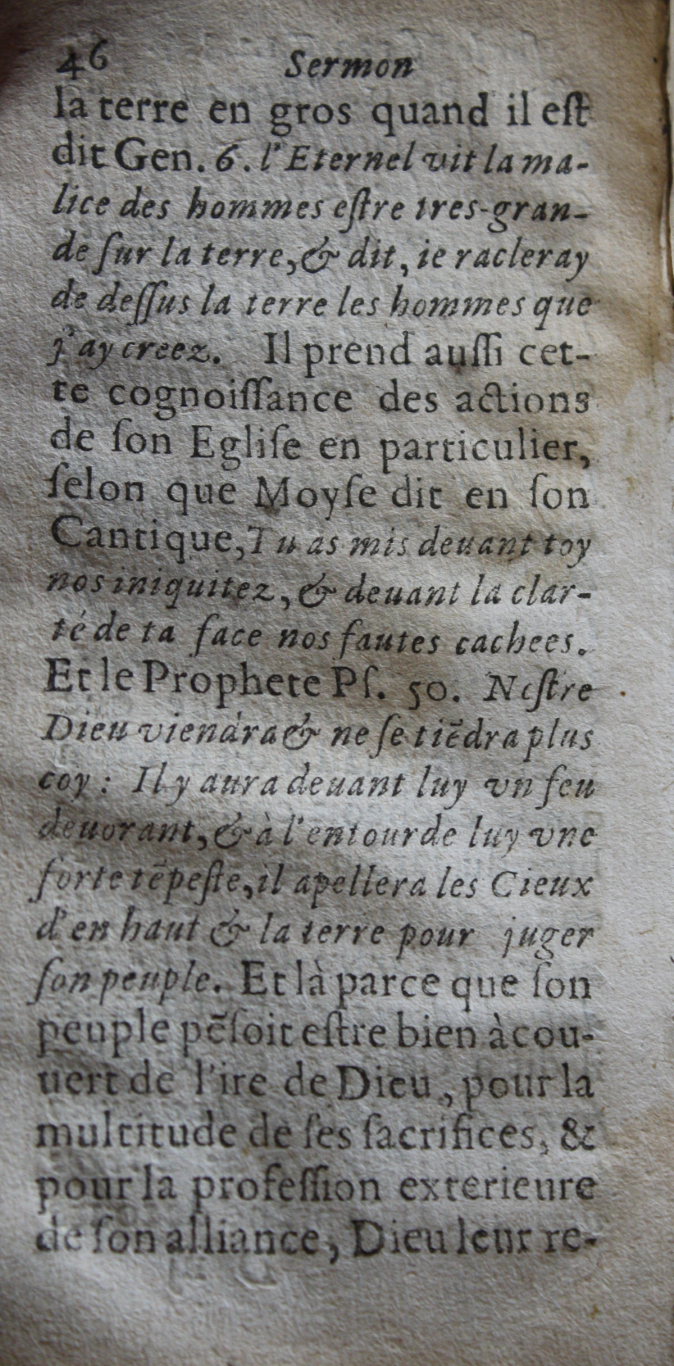 46 Sermon
la terre en gros quand il eſt
dit Gen. 6. l'Eternel vit la ma-
lice des hommes eſtre tres-gran-
de ſur la terre, & dit, ie racleray
de deſſus la terre les hommes que
j'ay creez. Il prend auſſi cet-
te cognoiſſance des actions
de ſon Egliſe en particulier,
ſelon que Moyſe dit en ſon
Cantique, Tu as mis deuant toy
nos iniquitez, & deuant la clar-
té de ta face nos fautes cachees.
Et le Prophete Pſ. 50. Noſtre
Dieu viendra & ne ſe tiẽdra plus
coy : Il y aura deuant luy vn feu
deuorant, & à l'entour de luy vne
forte tẽpeſte, il apellera les Cieux
d'en haut & la terre pour juger
ſon peuple. Et là parce que ſon
peuple pẽſoit eſtre bien à cou-
uert de l'ire de Dieu, pour la
multitude de ſes ſacrifices, &
pour la profeſſion exterieure
de ſon alliance, Dieu leur re-